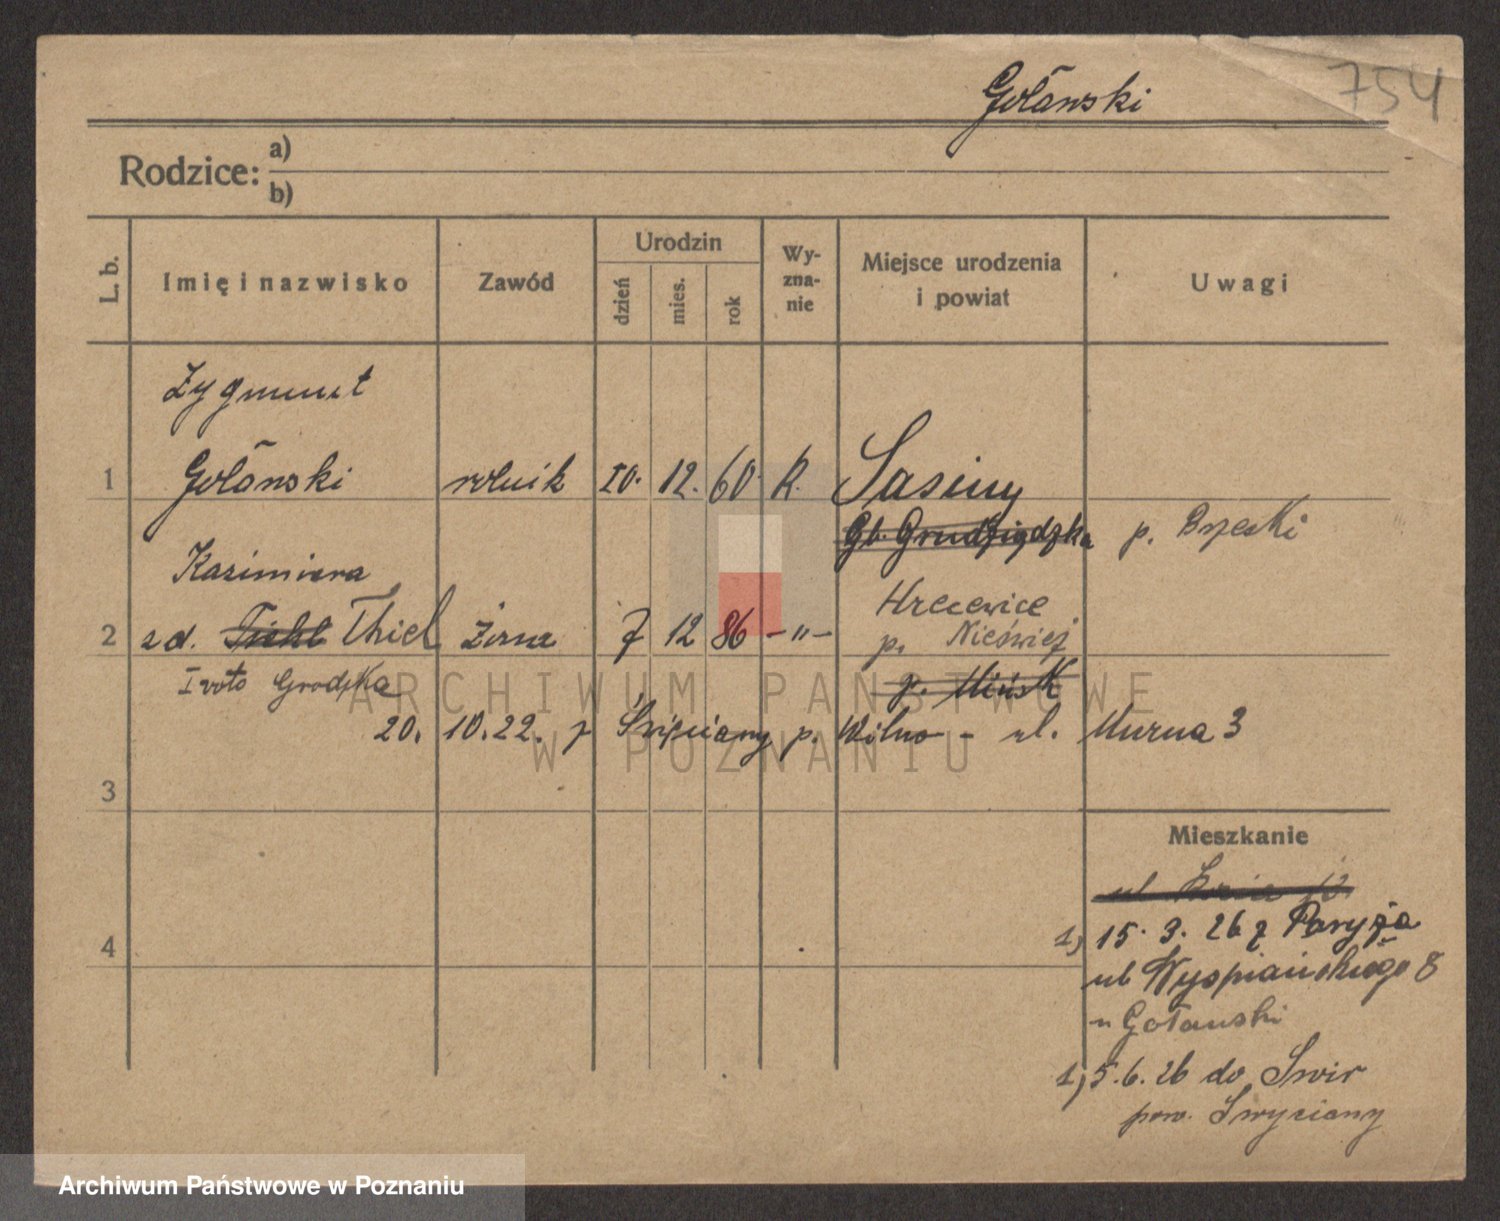 754
Gołański
Rodzice: a)
b)
L. b. Imię i nazwisko Zawód Urodzin dzień mies. rok Wy-zna-nie Miejsce urodzenia i powiat Uwagi
Zygmunt
1 Gołański rolnik 10. 12. 60. R. Sasiny
Gb. Grudziądzka p. Brzeski
Kazimiera
Hrecewice
2 zd. Thiel żona 7 12 86 -"- p. Nieśwież
I voto Grodzka p. Mińsk
20. 10. 22. z Święciany p. Wilno - ul. Murna 3
3
Mieszkanie
ul.
1) 15. 3. 26 z Paryża
4
ul Wyspiańskiego 8
u Gołański
1) 5. 6. 26 do Swir
pow. Swyciany
ARCHIWUM PAŃSTWOWE
W POZNANIU
Archiwum Państwowe w Poznaniu